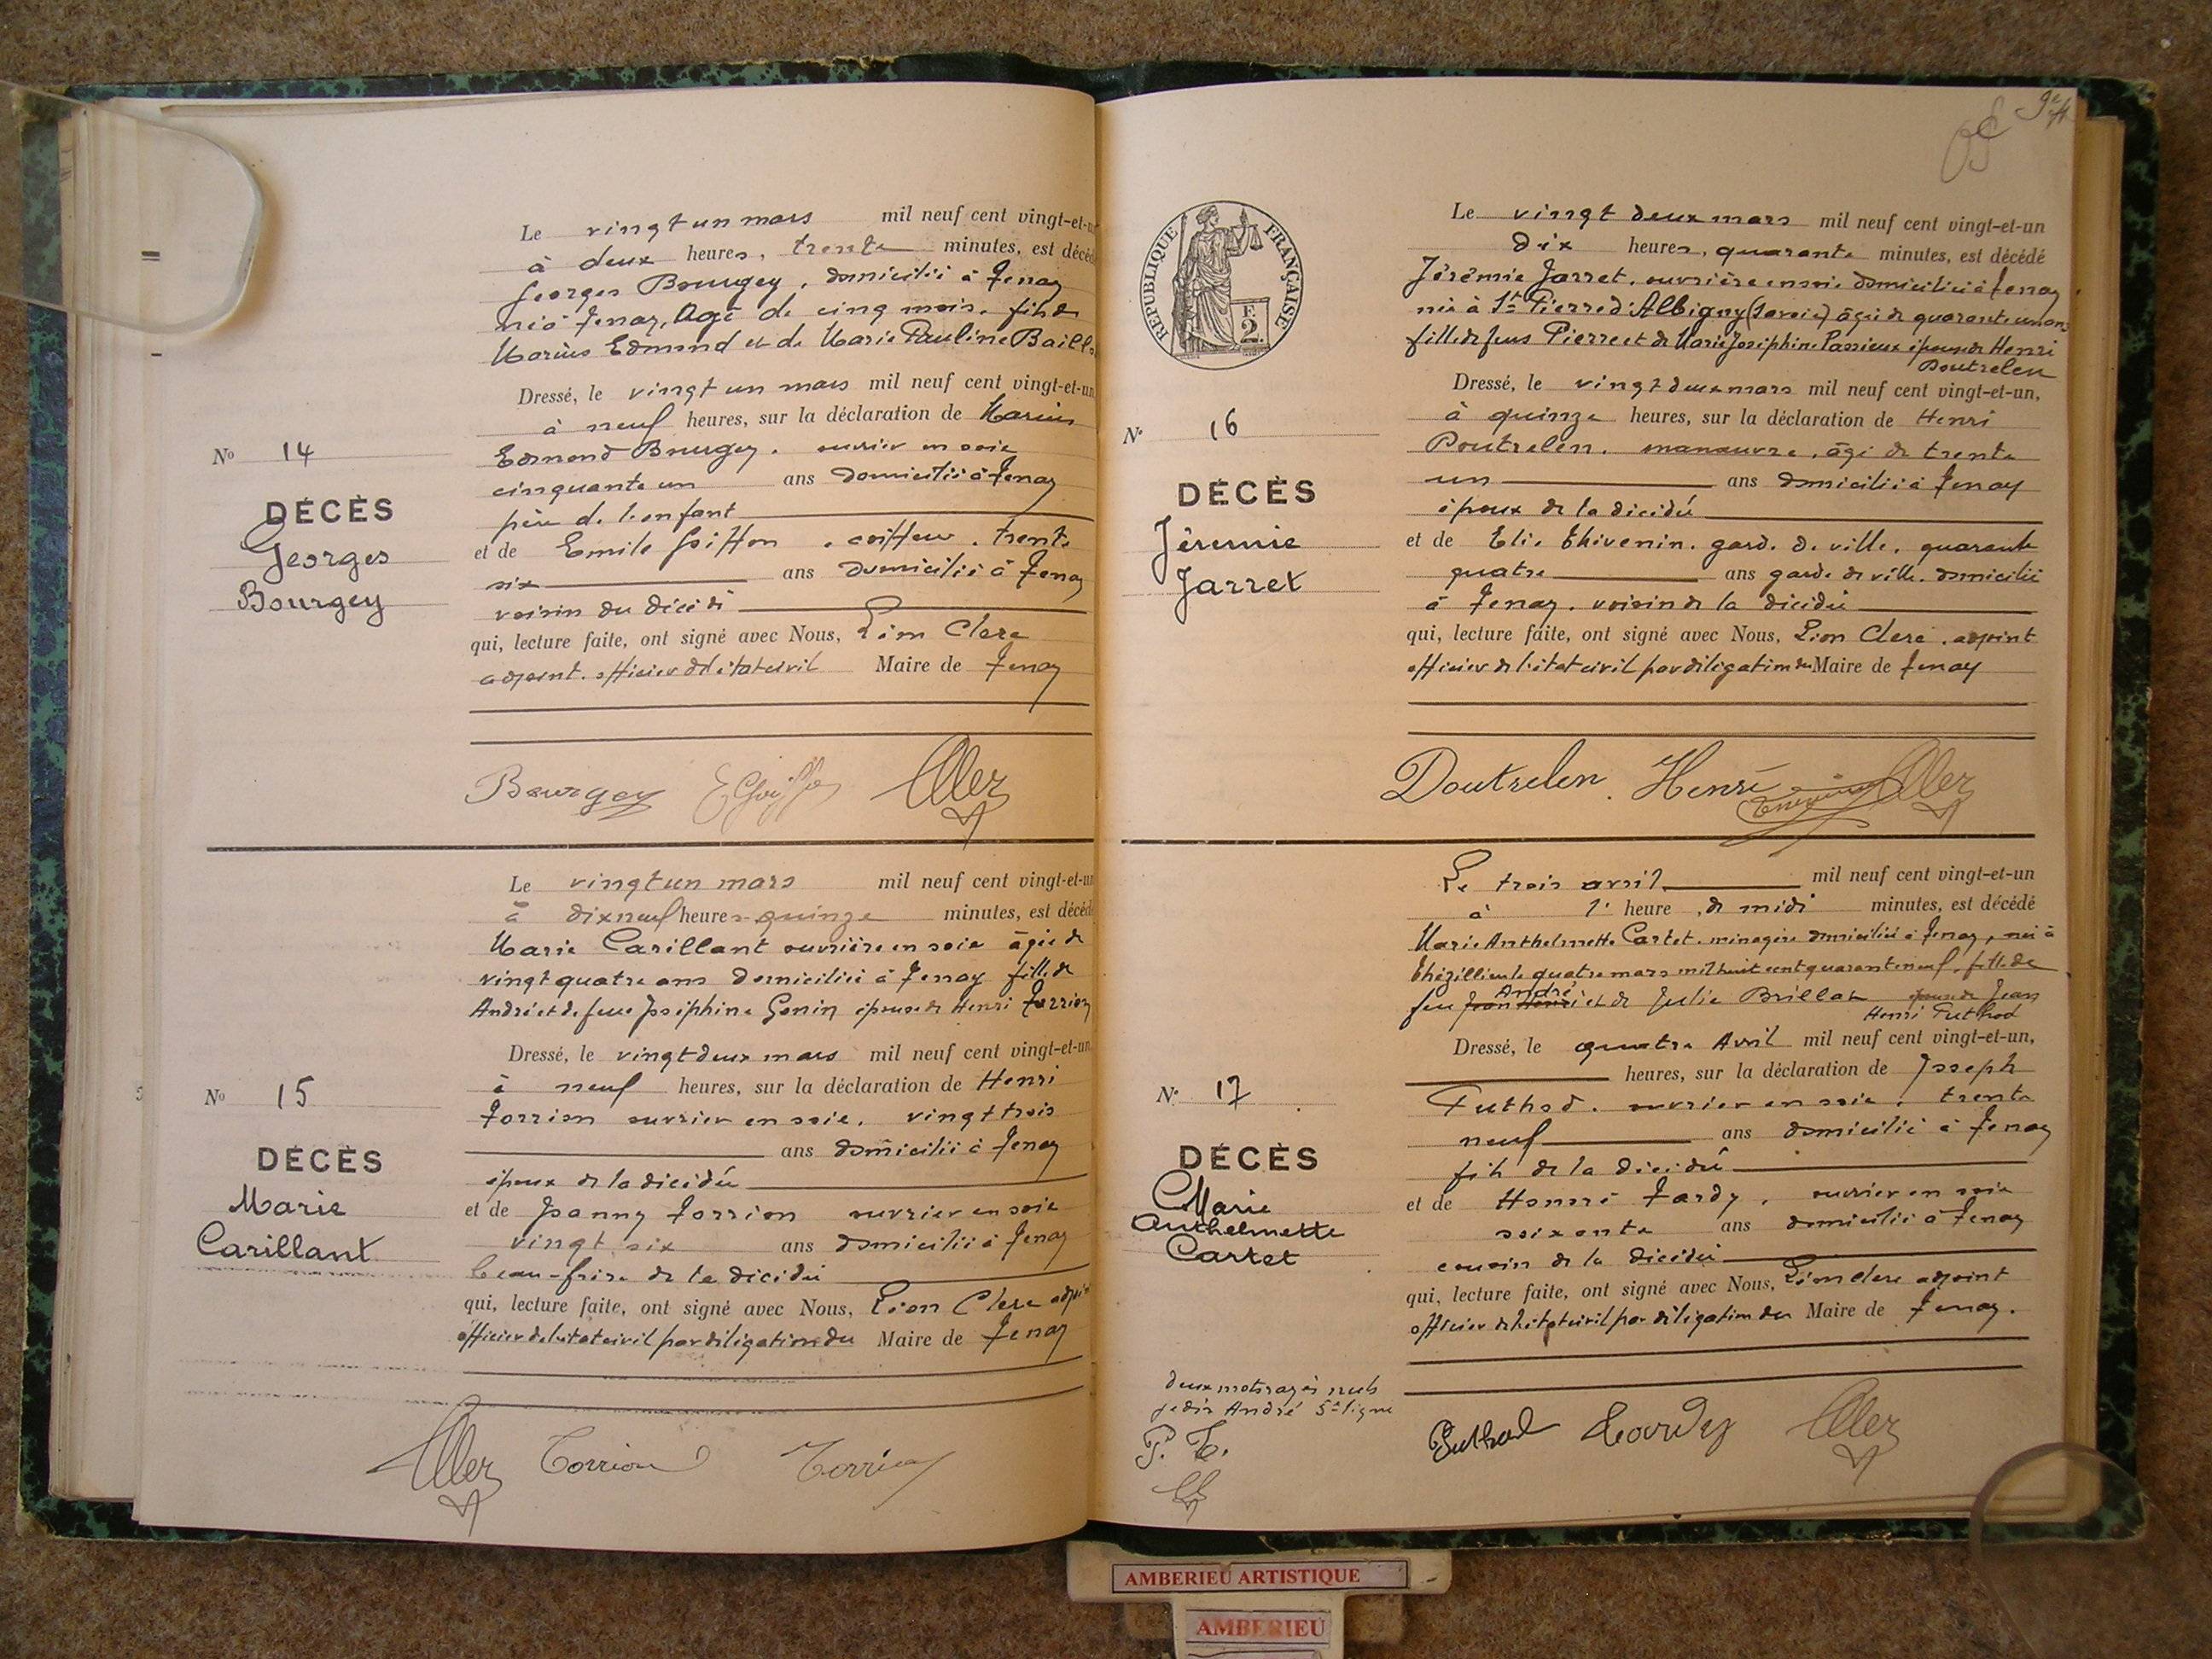 Le vingt un mars mil neuf cent vingt-et-un
à deux heures, trente minutes, est décédé
Georges Bourgey, domicilié à Tenay
né à Tenay, Agé de cinq mois. fils de
Marius Edmond et de Marie Pauline
Dressé, le vingt un mars mil neuf cent vingt-et-un
à neuf heures, sur la déclaration de Marius
Edmond Bourgey. ouvrier en soie
cinquante un ans domicilié à Tenay
père de l'enfant
et de Emile Goiffon, coiffeur. trente
six ans domicilié à Tenay
voisin du décédé
qui, lecture faite, ont signé avec Nous, Léon Clerc
adjoint. officier de l'état civil Maire de Tenay
No 14
DÉCÈS
Georges
Bourgey
Bourgey
Le vingt un mars mil neuf cent vingt-et-un
à dix neuf heures quinze minutes, est décédé
Marie Carillant ouvrière en soie âgée de
vingt quatre ans domiciliée à Tenay fille de
André et de feue Joséphine Genin épouse de Henri Torrion
Dressé, le vingt deux mars mil neuf cent vingt-et-un
à neuf heures, sur la déclaration de Henri
Torrion ouvrier en soie. vingt trois
ans domicilié à Tenay
époux de la décédée
et de Joanny Torrion ouvrier en soie
vingt six ans domicilié à Tenay
beau-frère de la décédée
qui, lecture faite, ont signé avec Nous, Léon Clerc adjoint
officier de l'état civil par délégation du Maire de Tenay
No 15
DÉCÈS
Marie
Carillant
Torrion
RÉPUBLIQUE FRANÇAISE
2
Le vingt deux mars mil neuf cent vingt-et-un
dix heures, quarante minutes, est décédé
Jérémie Jarret. ouvrière en soie domiciliée à Tenay
née à St Pierre d'Albigny (Savoie) âgée de quarante un ans
fille de feus Pierre et de Marie Joséphine épouse de Henri
Doutrelen
Dressé, le vingt deux mars mil neuf cent vingt-et-un,
à quinze heures, sur la déclaration de Henri
Doutrelen. manœuvre, âgé de trente
un ans domicilié à Tenay
époux de la décédée
et de Elie Thivenin. garde de ville, quarante
quatre ans garde de ville. domicilié
à Tenay. voisin de la décédée
qui, lecture faite, ont signé avec Nous, Léon Clerc. adjoint
officier de l'état civil par délégation du Maire de Tenay
N° 16
DÉCÈS
Jéremie
Jarret
Doutrelen. Henri
Le trois avril mil neuf cent vingt-et-un
à 1 heure, de midi minutes, est décédé
Marie Anthelmette Cartet. ménagère domiciliée à Tenay, née à
Thézillieu le quatre mars mil huit cent quarante neuf. fille de
feu Jean Henri André et de Julie Brillat épouse de Jean
Henri Puthod
Dressé, le quatre Avril mil neuf cent vingt-et-un,
heures, sur la déclaration de Joseph
Puthod. ouvrier en soie. trente
neuf ans domicilié à Tenay
fils de la décédée
et de Honoré Tardy, ouvrier en soie
soixante ans domicilié à Tenay
cousin de la décédée
qui, lecture faite, ont signé avec Nous, Léon Clerc adjoint
officier de l'état civil par délégation du Maire de Tenay.
N° 17
DÉCÈS
Marie
Anthelmette
Cartet
deux mots rayés nuls
je dis André 5e ligne
P. T.
Puthod Tardy
AMBERIEU ARTISTIQUE
AMBERIEU